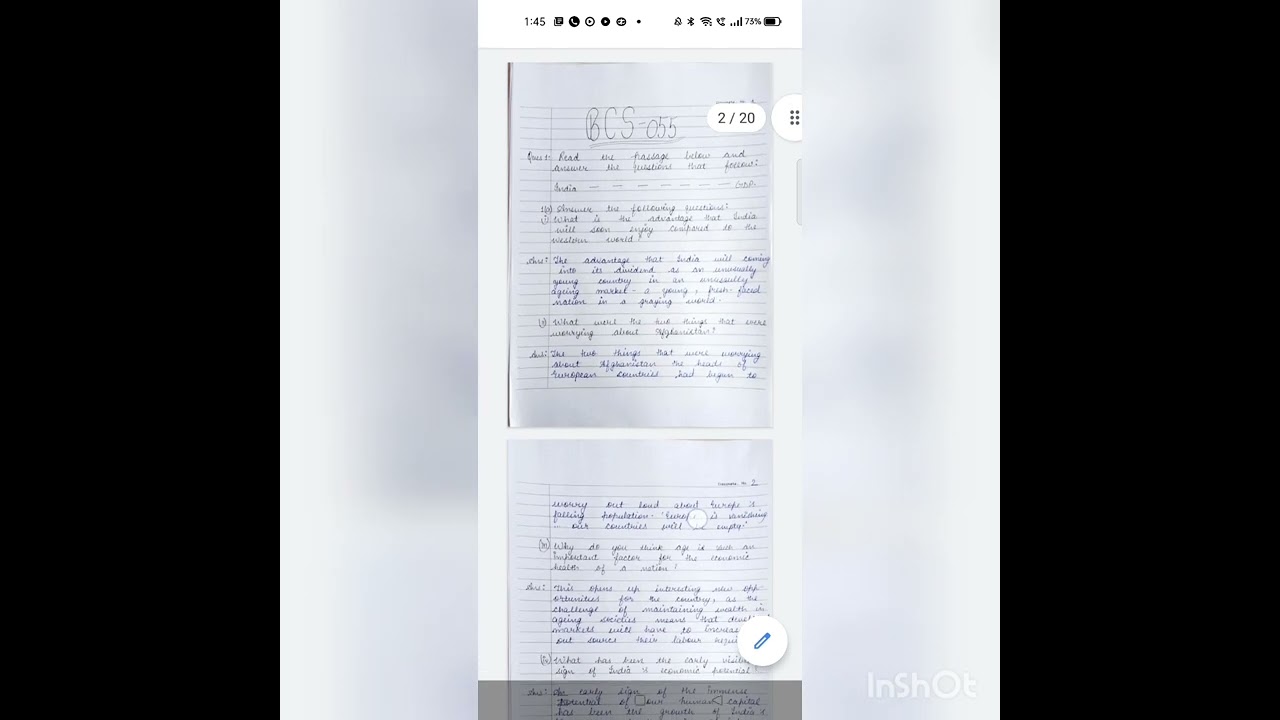 1:45
73%
2 / 20
BCS-055
Ques 1: Read the passage below and
answer the questions that follow:
India — — — — — — — —
1(a) Answer the following questions:
(i) What is the advantage that India
will soon enjoy compared to the
western world?
Ans: The advantage that India will coming
into its dividend as an unusually
young country in an unusually
ageing market - a young, fresh-faced
nation in a graying world.
What were the two things that were
worrying about Afghanistan?
Ans: The two things that were worrying
about Afghanistan the heads of
European countries had begun to
2
worry out loud about Europe's
falling population. 'Europe is vanishing
... our countries will be empty.'
(iii) Why do you think age is such an
important factor for the economic
health of a nation?
Ans: This opens up interesting new opp-
ortunities for the country, as the
challenge of maintaining wealth in
ageing societies means that
markets will have to increase
out source their labour
(iv) What has been the early
sign of India's economic potential?
Ans: An early sign of the immense
potential of our human capital
has been the growth of India's
InShOt